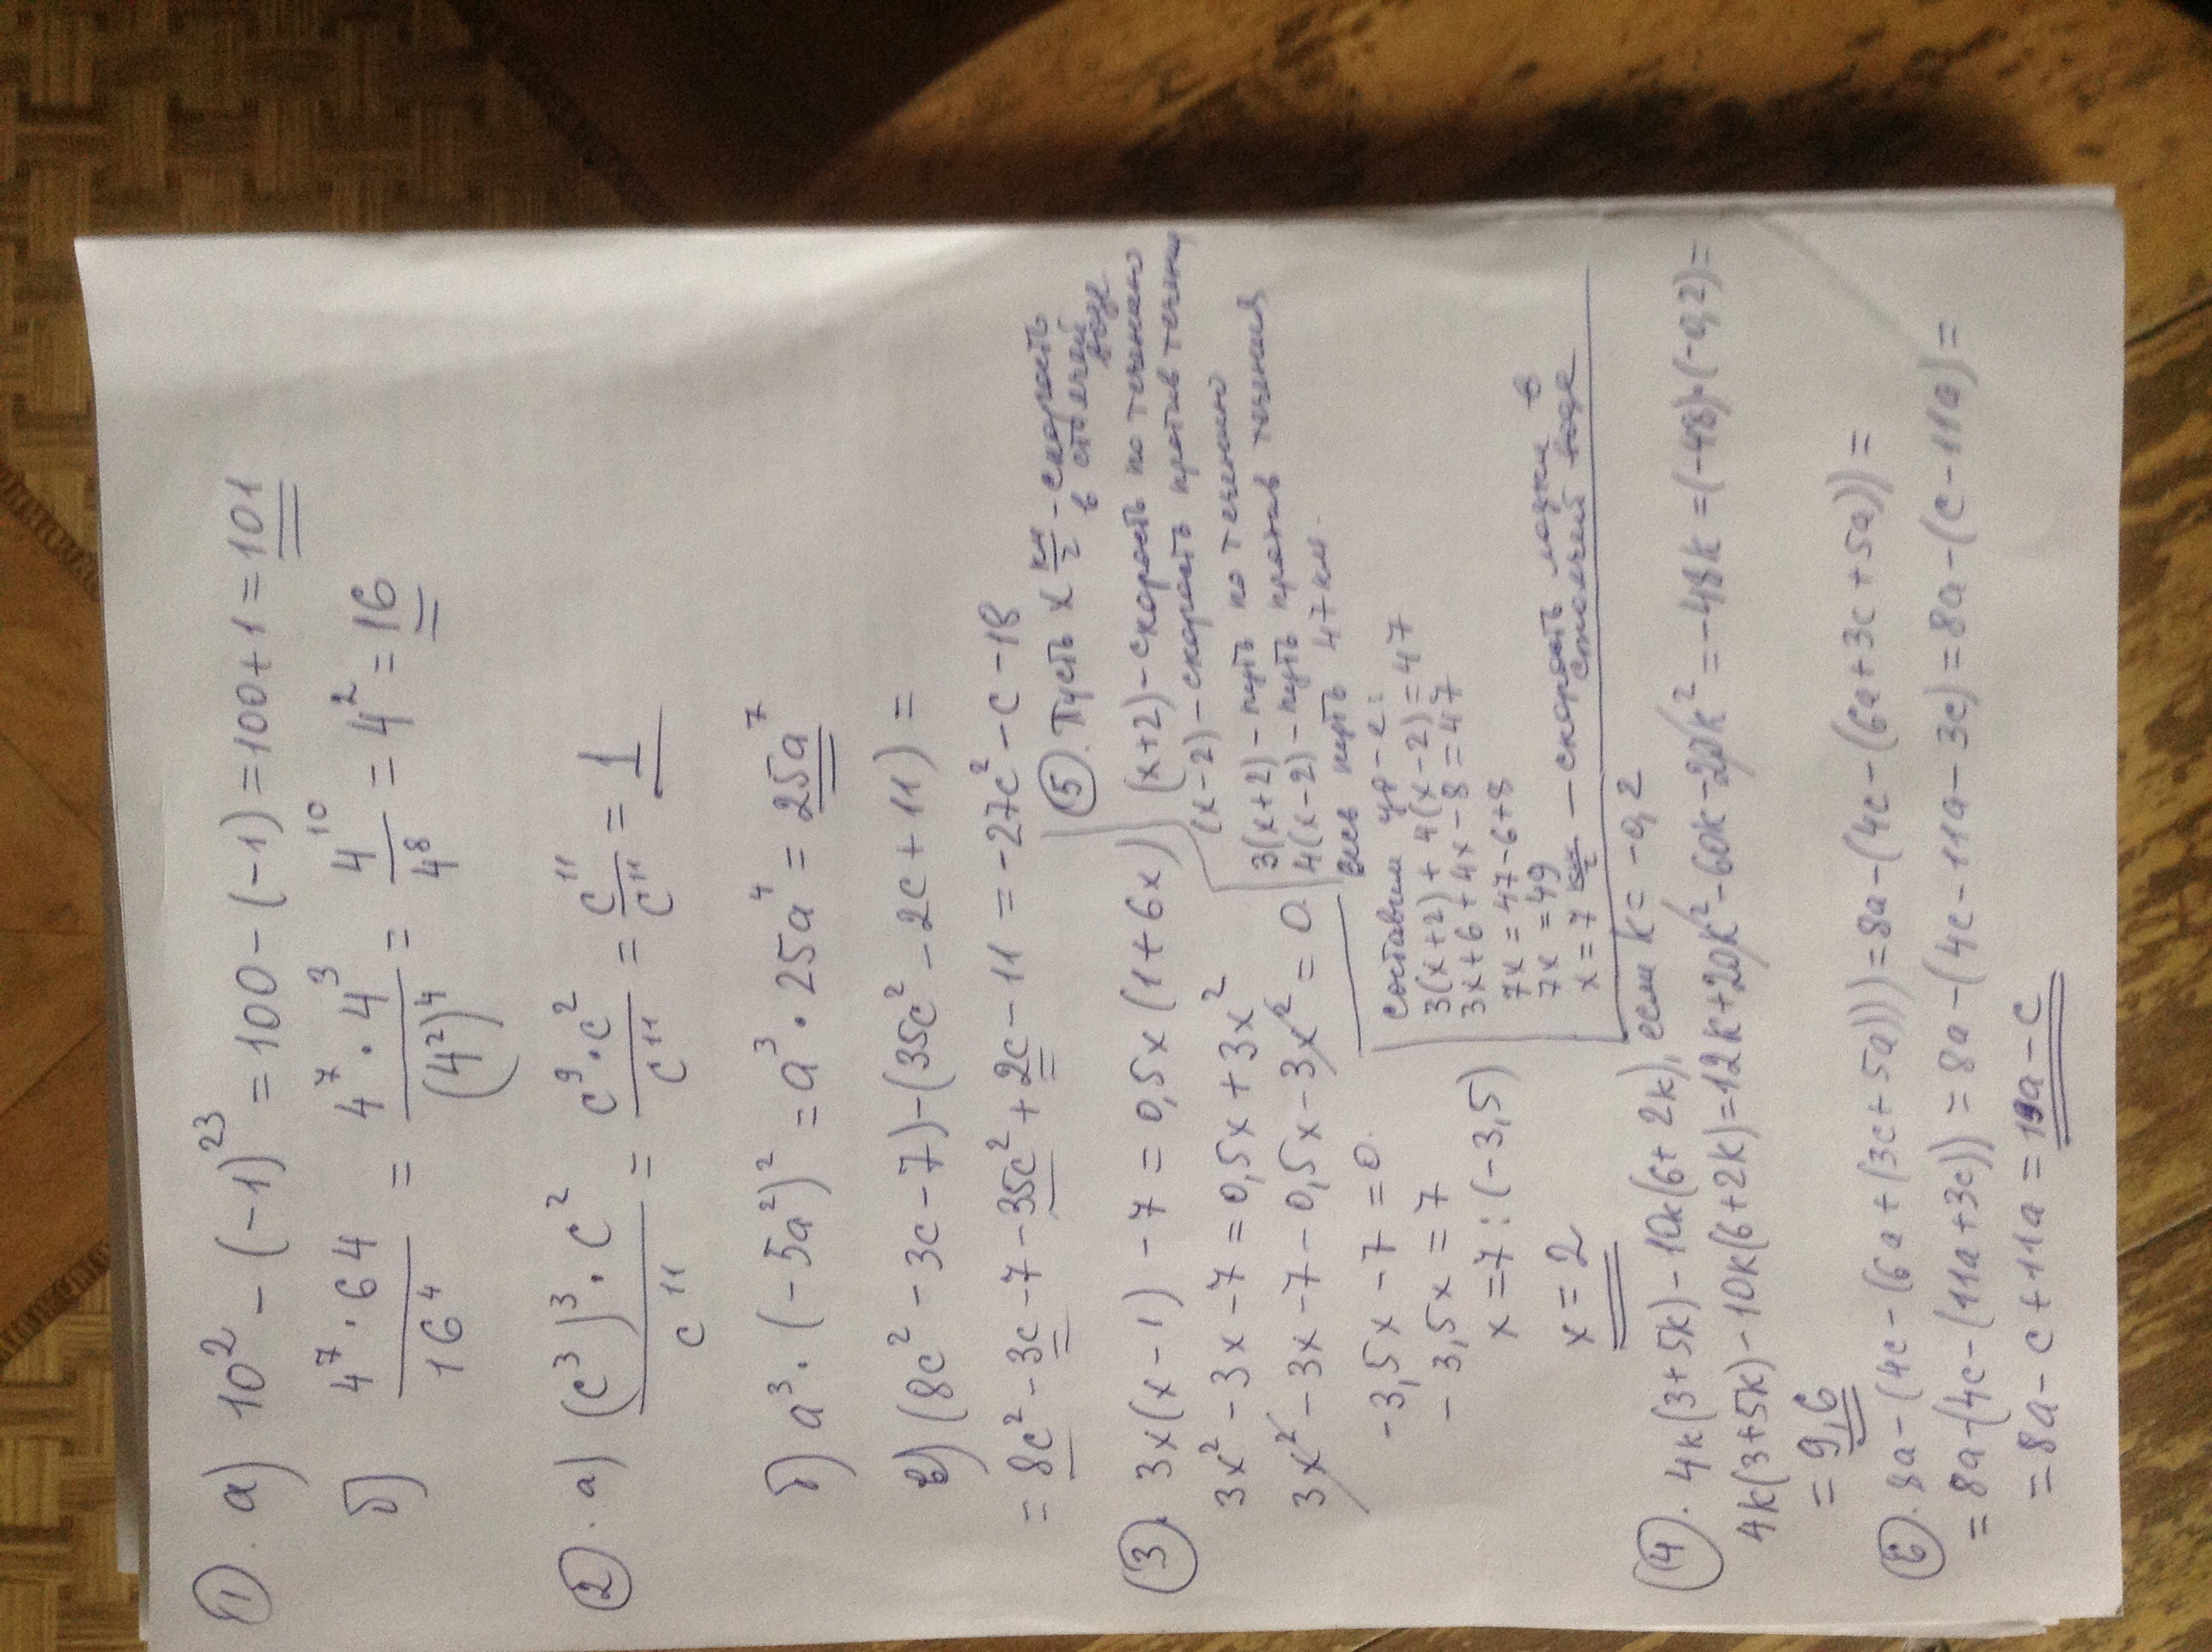 ①. а) 10² - (-1)²³ = 100 - (-1) = 100 + 1 = 101
б) (4⁷ · 64)/16⁴ = (4⁷ · 4³)/(4²)⁴ = 4¹⁰/4⁸ = 4² = 16
②. а) ((c³)³ · c²)/c¹¹ = (c⁹ · c²)/c¹¹ = c¹¹/c¹¹ = 1
б) a³ · (-5a²)² = a³ · 25a⁴ = 25a⁷
в) (8c² - 3c - 7) - (35c² - 2c + 11) =
= 8c² - 3c - 7 - 35c² + 2c - 11 = -27c² - c - 18
③. 3x(x - 1) - 7 = 0,5x(1 + 6x)
3x² - 3x - 7 = 0,5x + 3x²
3x² - 3x - 7 - 0,5x - 3x² = 0
-3,5x - 7 = 0
-3,5x = 7
x = 7 : (-3,5)
x = 2
⑤. Пусть x км/г - скорость
в стоячей
воде
(x+2) - скорость по течению
(x-2) - скорость против течения
3(x+2) - путь по течению
4(x-2) - путь против течения
весь путь 47 км.
составим ур-е:
3(x+2) + 4(x-2) = 47
3x + 6 + 4x - 8 = 47
7x = 47 - 6 + 8
7x = 49
x = 7 км/г - скорость лодки в
стоячей воде
④. 4k(3+5k) - 10k(6+2k), если k = -0,2
4k(3+5k) - 10k(6+2k) = 12k + 20k² - 60k - 20k² = -48k = (-48)·(-0,2) =
= 9,6
⑥. 8a - (4c - (6a + (3c + 5a))) = 8a - (4c - (6a + 3c + 5a)) =
= 8a - (4c - (11a + 3c)) = 8a - (4c - 11a - 3c) = 8a - (c - 11a) =
= 8a - c + 11a = 19a - c